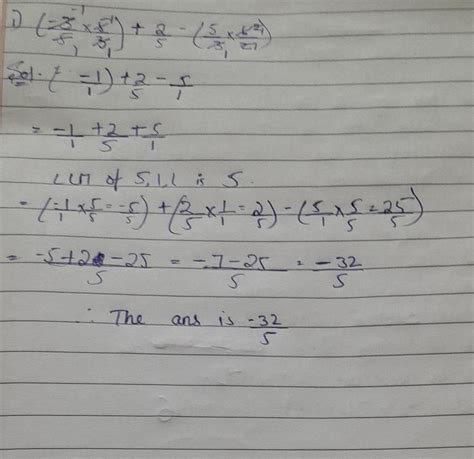 i) (-3/5 × 5/3) + 2/5 - (5/3 × /21)
Sol. (-1/1) + 2/5 - 5/1
= -1/1 + 2/5 + 5/1
LCM of 5,1,1 is 5.
= (-1/1 × 5/5 = -5/5) + (2/5 × 1/1 = 2/5) - (5/1 × 5/5 = 25/5)
= -5+2-25/5 = -7-25/5 = -32/5
∴ The ans is -32/5